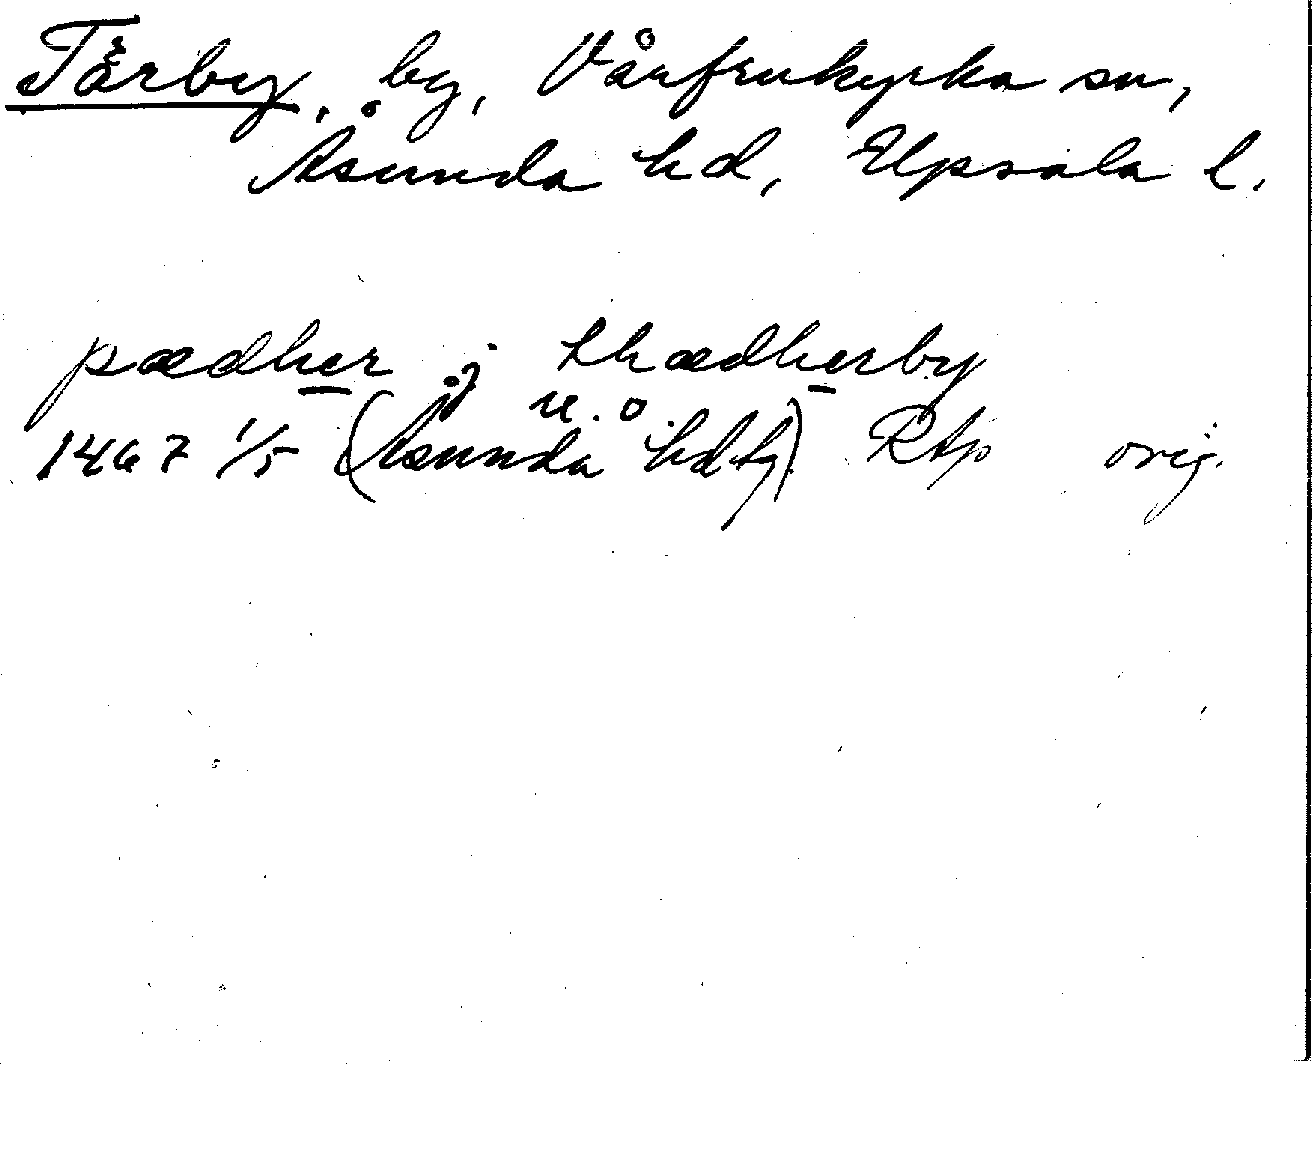 Tårby, by, Vårfrukyrka sn,
Åsunda hd, Upsala l.
pædher j thædherby
u. o
1467 1/5 (Åsunda hdtg) Rtp orig.